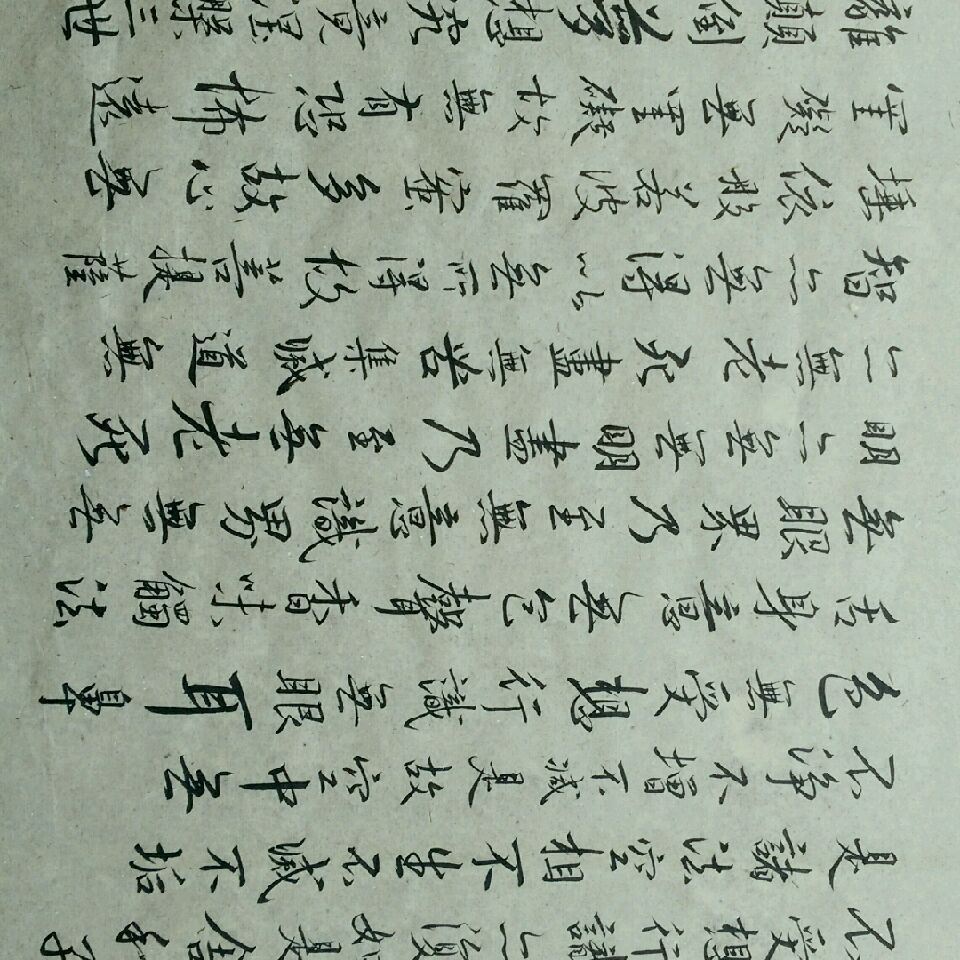 受想行識亦復如是舍利子
是諸法空相不生不滅不垢
不淨不增不減是故空中無
色無受想行識無眼耳鼻
舌身意無色聲香味觸法
無眼界乃至無意識界無無
明亦無無明盡乃至無老死
亦無老死盡無苦集滅道無
智亦無得以無所得故菩提薩
埵依般若波羅蜜多故心無
罣礙無罣礙故無有恐怖遠
離顛倒夢想究竟涅槃三世